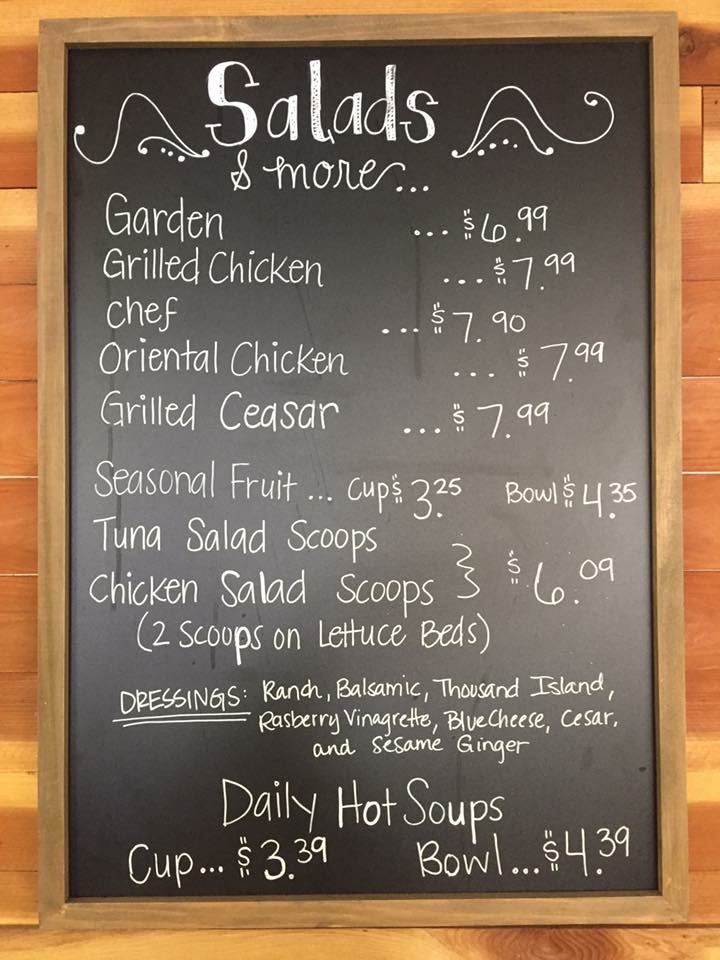 Salads
& more...
Garden ... $6.99
Grilled Chicken ... $7.99
chef ... $7.90
Oriental Chicken ... $7.99
Grilled Ceasar ... $7.99
Seasonal Fruit ... Cup $3.25 Bowl $4.35
Tuna Salad Scoops
Chicken Salad Scoops } $6.09
(2 Scoops on Lettuce Beds)
DRESSINGS: Ranch, Balsamic, Thousand Island,
Rasberry Vinagrette, Blue Cheese, Cesar,
and Sesame Ginger
Daily Hot Soups
Cup... $3.39 Bowl... $4.39